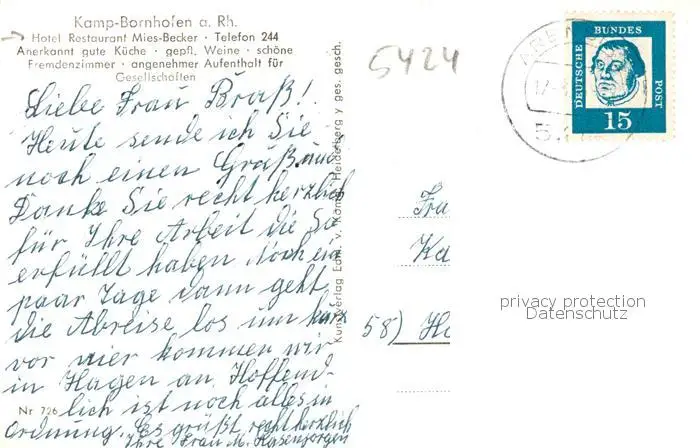 Kamp-Bornhofen a. Rh.
Hotel Restaurant Mies-Becker · Telefon 244
Anerkannt gute Küche · gepfl. Weine · schöne
Fremdenzimmer · angenehmer Aufenthalt für
Gesellschaften
Liebe Frau Braß!
Heute sende ich Sie
noch einen Gruß und
Danke Sie recht herzlich
für Ihre Arbeit die Sie
erfüllt haben Noch ein
paar Tage dann geht
die Abreise los um kurz
vor vier kommen wir
in Hagen an. Hoffend-
lich ist noch alles in
Ordnung. Es grüßt recht herzlich
Ihre Frau M. Hasenjorgen
Nr. 726
Kunstverlag Edm. v. König, Heidelberg y ges. gesch.
5424
DEUTSCHE
BUNDES
POST
15
Fra
Ka
58) Ha
privacy protection
Datenschutz